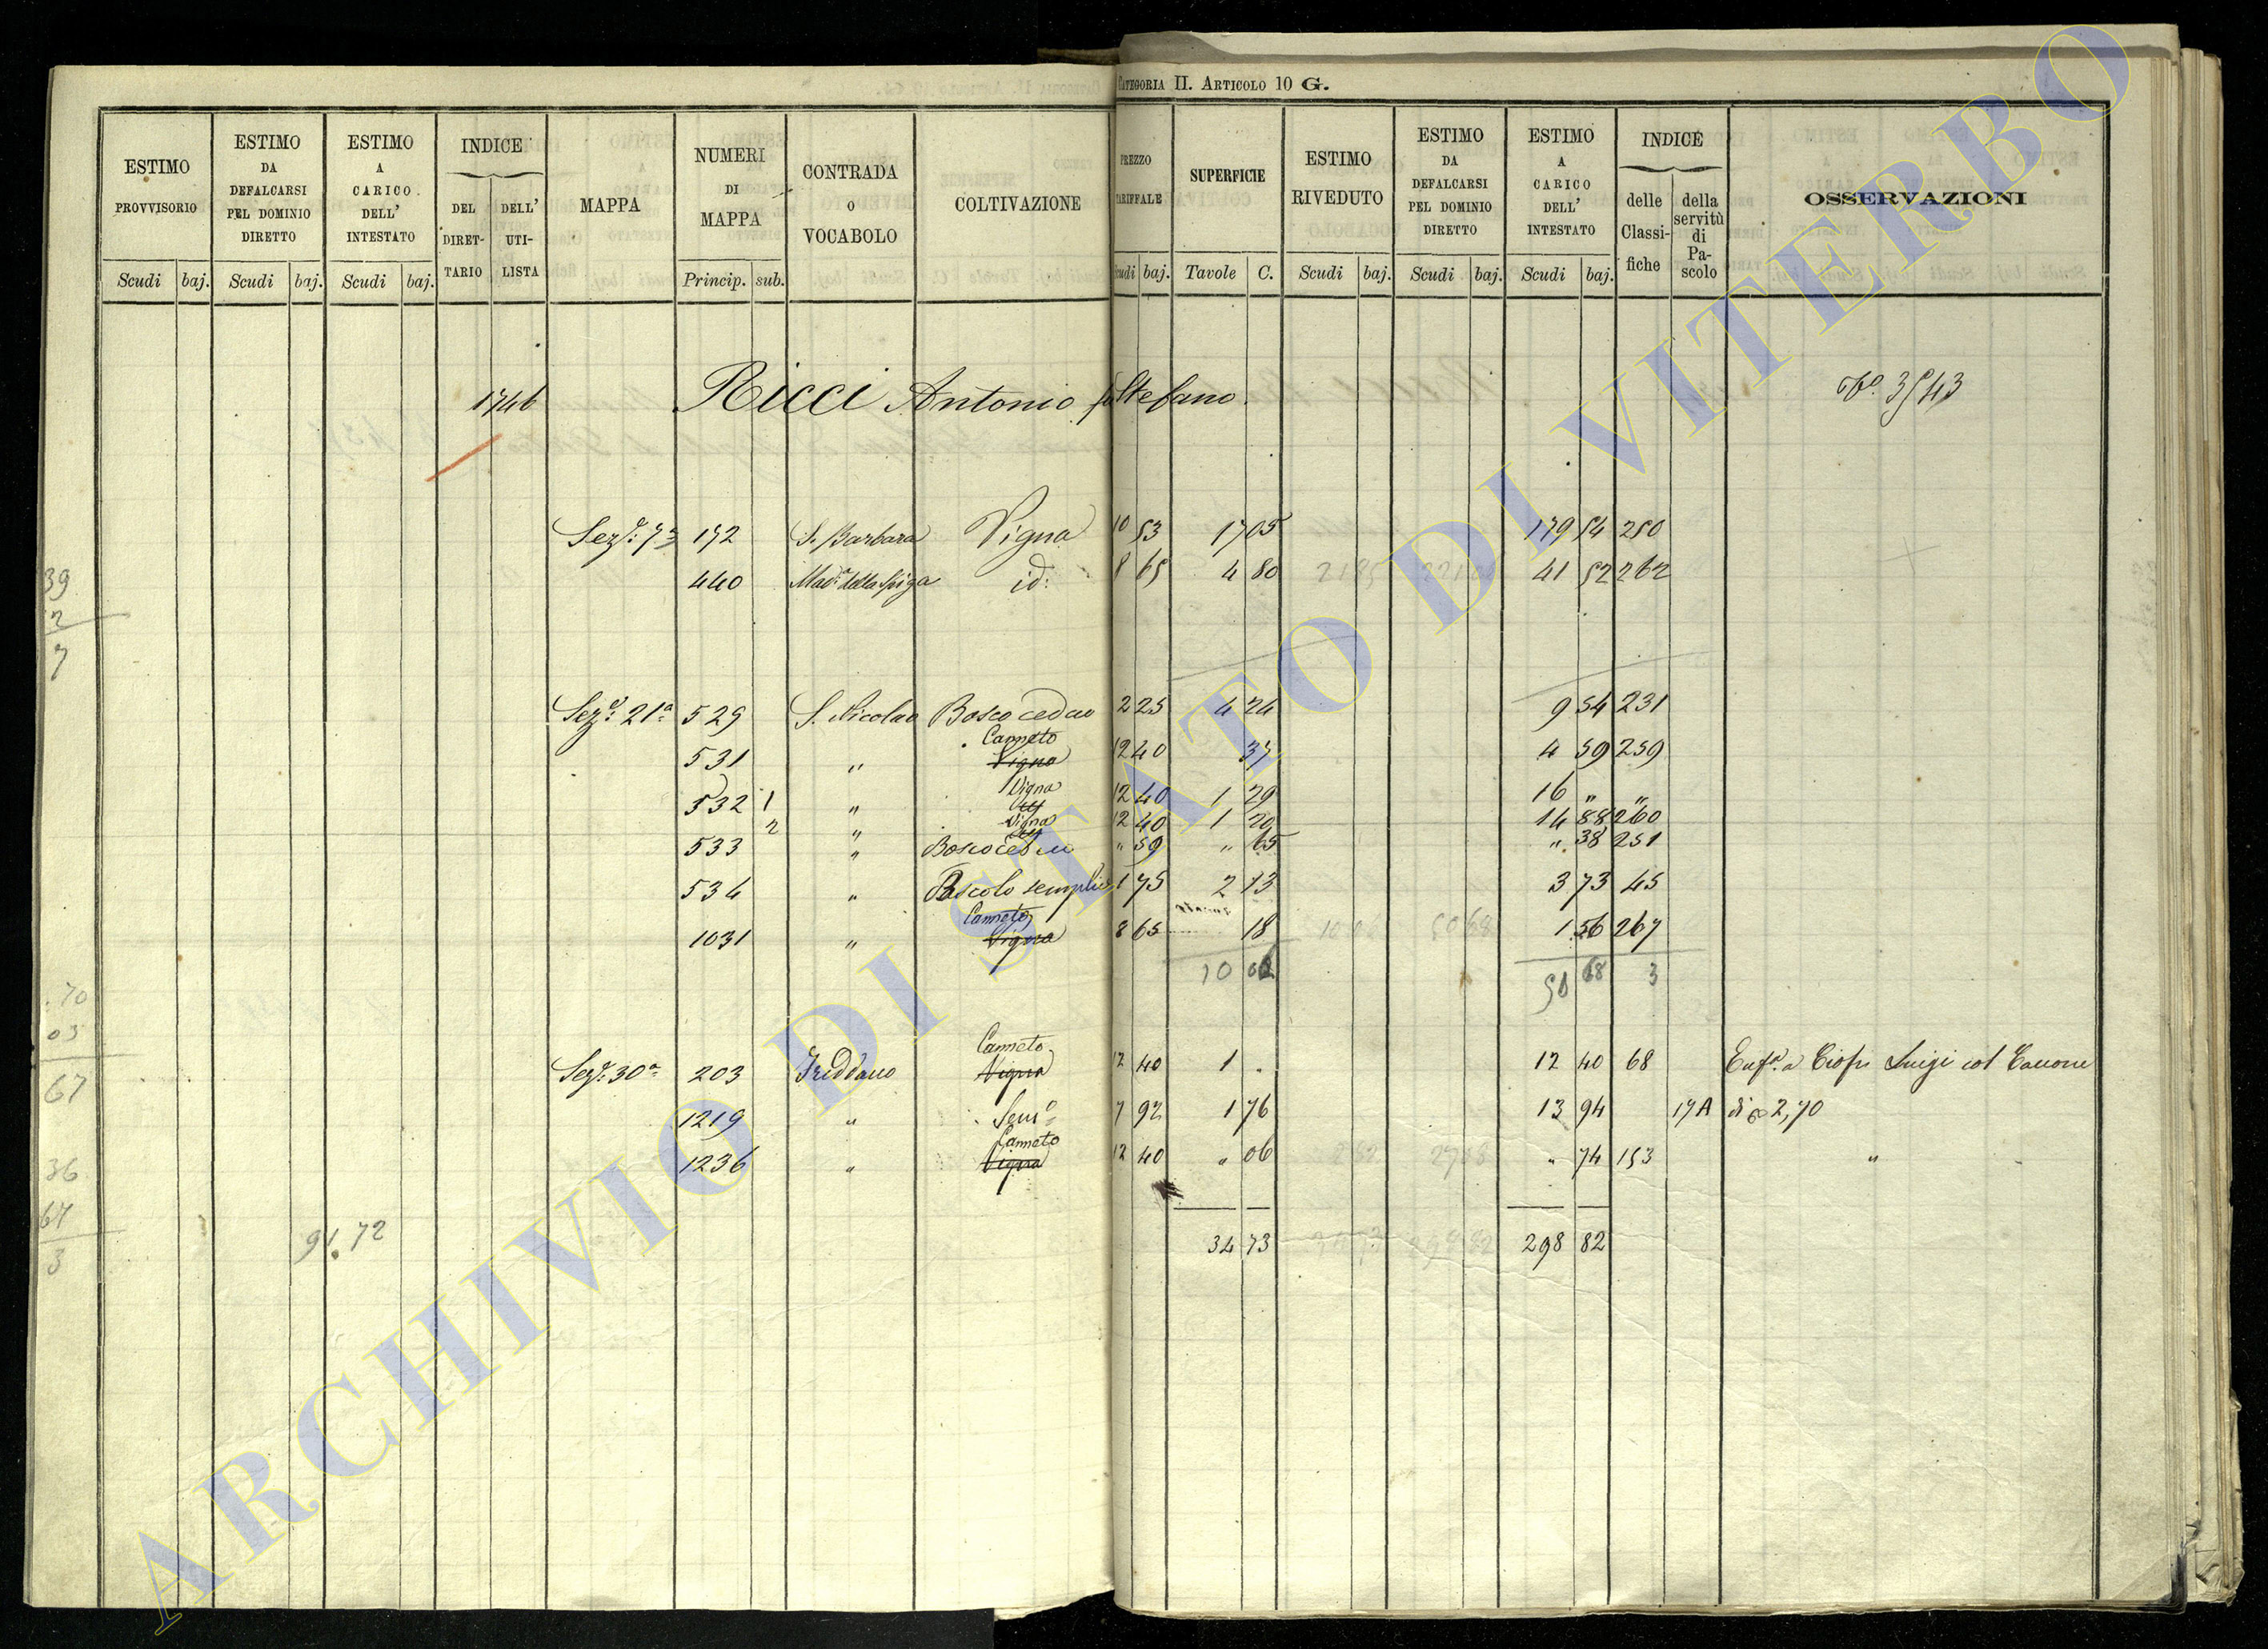 CATEGORIA II. ARTICOLO 10 G.
ESTIMO PROVVISORIO Scudi baj.
ESTIMO DA DEFALCARSI PEL DOMINIO DIRETTO Scudi baj.
ESTIMO A CARICO DELL' INTESTATO Scudi baj.
INDICE DEL DIRETTARIO DELL' UTILISTA
MAPPA
NUMERI DI MAPPA Princip. sub.
CONTRADA O VOCABOLO
COLTIVAZIONE
PREZZO TARIFFALE Scudi baj.
SUPERFICIE Tavole C.
ESTIMO RIVEDUTO Scudi baj.
ESTIMO DA DEFALCARSI PEL DOMINIO DIRETTO Scudi baj.
ESTIMO A CARICO DELL' INTESTATO Scudi baj.
INDICE delle Classifiche della servitù di Pascolo
OSSERVAZIONI
1746 Ricci Antonio fu Stefano 3543
Sezе: 7a 172 S. Barbara Vigna 10 53 17 05 179 54 250
440 Mada della Spiga id: 8 65 4 80 41 52 262
Seze: 21a 529 S. Nicolao Bosco ceduo 2 25 4 24 9 54 231
Canneto
531 " Vigna 12 40 37 4 59 259
532 1 " Vigna 12 40 1 29 16 " "
2 " Vigna 12 40 1 20 14 88 260
533 " Bosco ceduo " 59 " 65 " 38 251
534 " Pascolo semplice 1 75 2 13 3 73 45
Canneto
1031 " Vigna 8 65 18 1 56 267
10 06 50 68 3
Canneto
Seze: 30a 203 Freddano Vigna 12 40 1 . 12 40 68 Enfa a Ciofi Luigi col Canone
1219 " Semo 7 92 1 76 13 94 17A di 2,70
Canneto
1236 " Vigna 12 40 " 06 " 74 153 "
91.72 34 73 298 82
39
2
7
70
03
67
36
67
3
ARCHIVIO DI STATO DI VITERBO